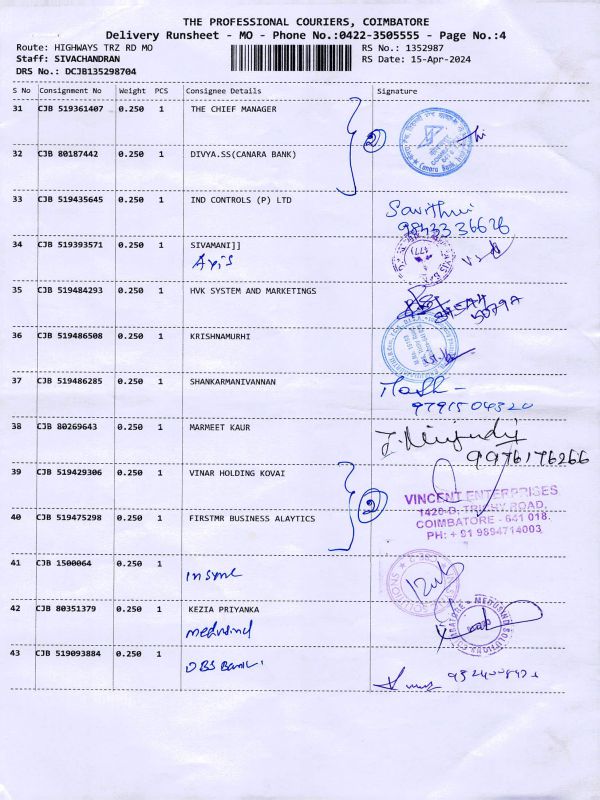 THE PROFESSIONAL COURIERS, COIMBATORE
Delivery Runsheet - MO - Phone No.:0422-3505555 - Page No.:4
Route: HIGHWAYS TRZ RD MO RS No.: 1352987
Staff: SIVACHANDRAN RS Date: 15-Apr-2024
DRS No.: DCJB135298704
S No Consignment No Weight PCS Consignee Details Signature
31 CJB 519361407 0.250 1 THE CHIEF MANAGER
2
32 CJB 80187442 0.250 1 DIVYA.SS(CANARA BANK)
33 CJB 519435645 0.250 1 IND CONTROLS (P) LTD
Savithri
9843336626
34 CJB 519393571 0.250 1 SIVAMANI]]
Axis
35 CJB 519484293 0.250 1 HVK SYSTEM AND MARKETINGS
36 CJB 519486508 0.250 1 KRISHNAMURHI
37 CJB 519486285 0.250 1 SHANKARMANIVANNAN
9791504320
38 CJB 80269643 1 MARMEET KAUR
9976176266
39 CJB 519429306 0.250 1 VINAR HOLDING KOVAI
2
VINCENT ENTERPRISES
1420-D, TRICHY ROAD,
40 CJB 519475298 0.250 1 FIRSTMR BUSINESS ALAYTICS
COIMBATORE - 641 018.
PH: + 91 9894714003
41 CJB 1500064 0.250 1
insync
42 CJB 80351379 0.250 1 KEZIA PRIYANKA
medusind
43 CJB 519093884 0.250 1
DBS Bank